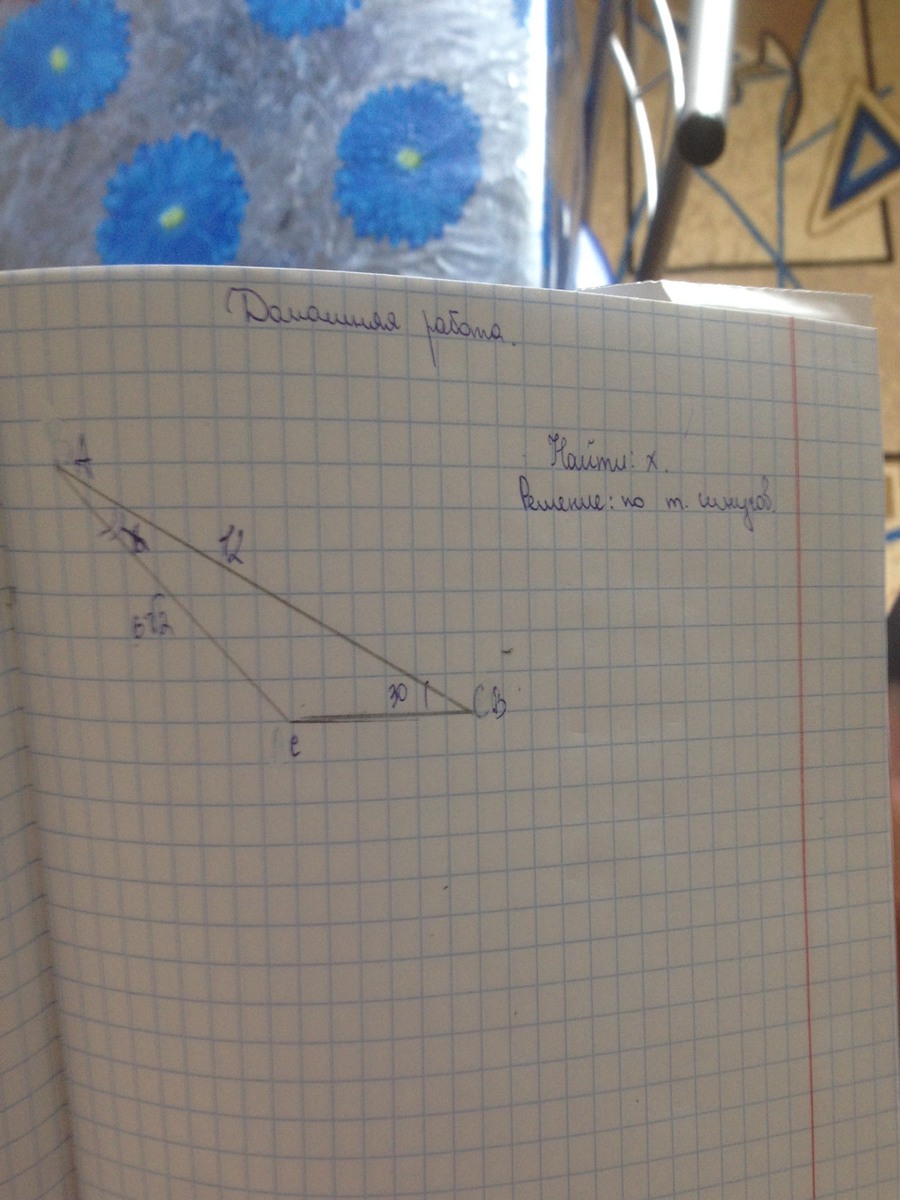 Домашняя работа.
A
Найти: x.
Решение: по т. синусов
12
6√2
30
B
C